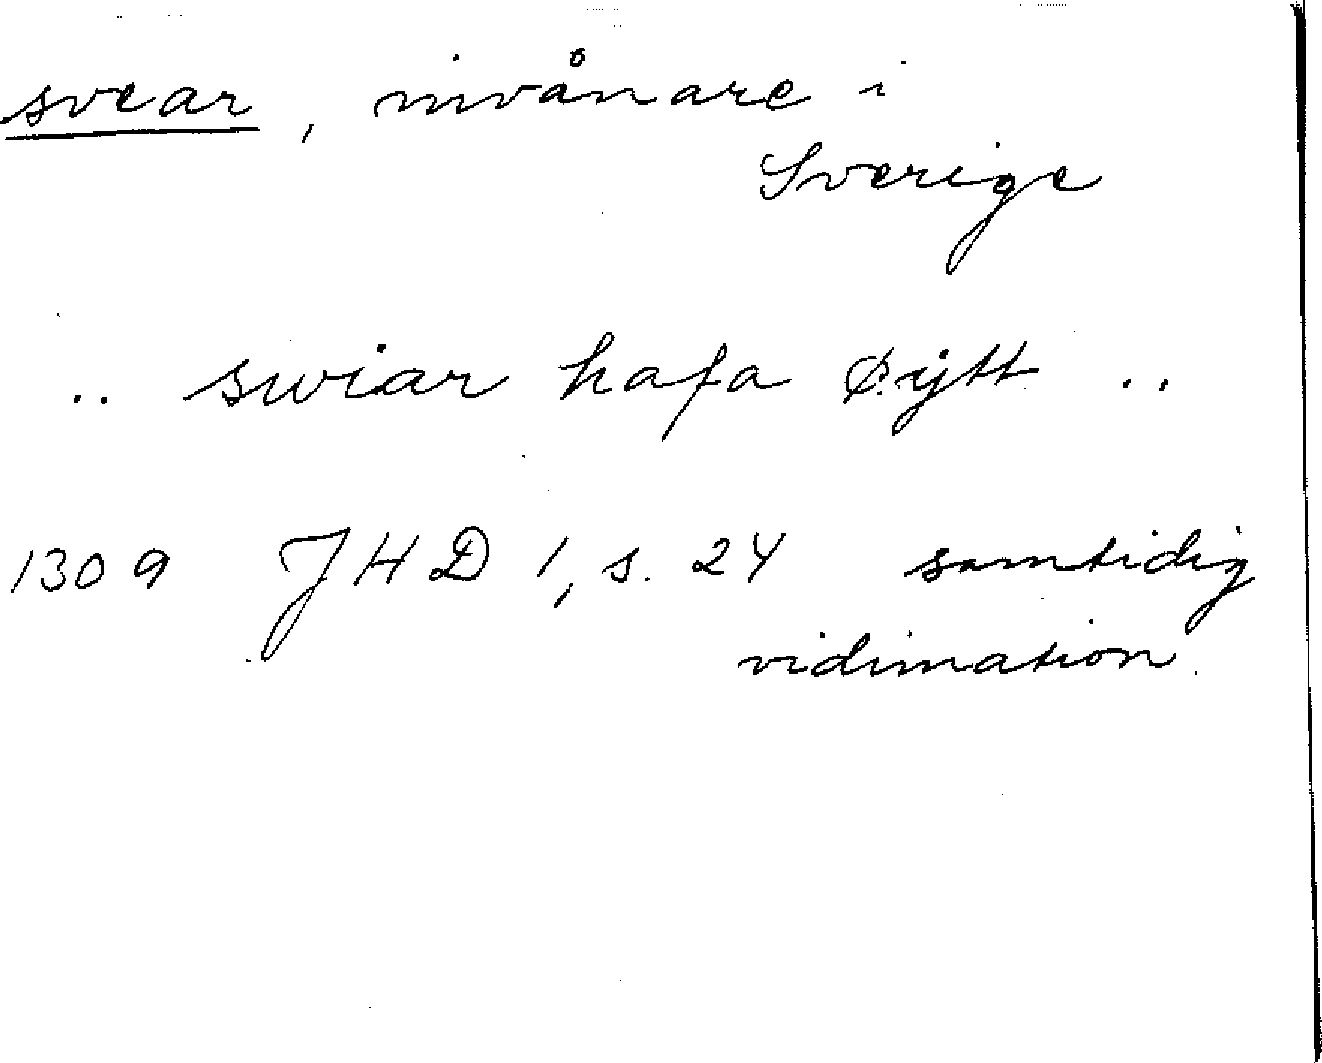 svear, invånare i
Sverige
.. swiar hafa øytt ..
1309 JHD 1, s. 24 samtidig
vidimation.